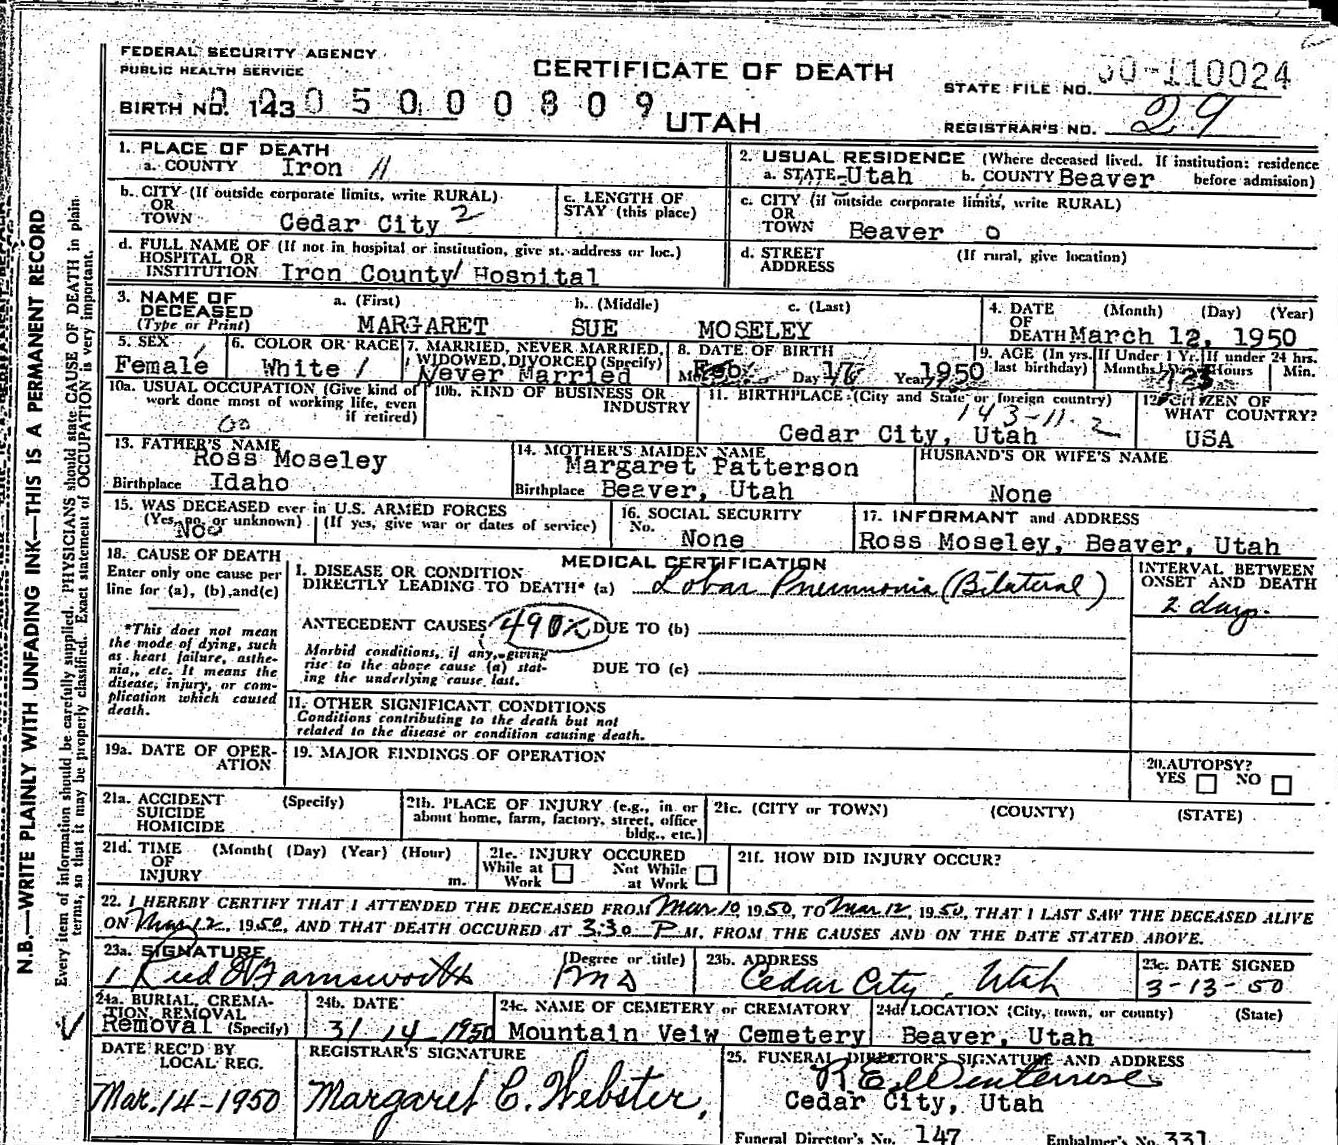 FEDERAL SECURITY AGENCY
PUBLIC HEALTH SERVICE
CERTIFICATE OF DEATH
STATE FILE NO. 50-110024
BIRTH NO. 143 0 0 0 5 0 0 0 8 0 9
UTAH
REGISTRAR'S NO. 29
N.B.—WRITE PLAINLY WITH UNFADING INK—THIS IS A PERMANENT RECORD
Every item of information should be carefully supplied. PHYSICIANS should state CAUSE OF DEATH in plain
terms, so that it may be properly classified. Exact statement of OCCUPATION is very important.
1. PLACE OF DEATH
a. COUNTY Iron 11
2. USUAL RESIDENCE (Where deceased lived. If institution: residence
a. STATE Utah b. COUNTY Beaver before admission)
b. CITY (If outside corporate limits, write RURAL)
OR
TOWN Cedar City 2
c. LENGTH OF
STAY (this place)
c. CITY (if outside corporate limits, write RURAL)
OR
TOWN Beaver 0
d. FULL NAME OF (If not in hospital or institution, give st. address or loc.)
HOSPITAL OR
INSTITUTION Iron County Hospital
d. STREET (If rural, give location)
ADDRESS
3. NAME OF a. (First) b. (Middle) c. (Last)
DECEASED
(Type or Print) MARGARET SUE MOSELEY
4. DATE (Month) (Day) (Year)
OF
DEATH March 12, 1950
5. SEX
Female
6. COLOR OR RACE
White
7. MARRIED, NEVER MARRIED,
WIDOWED, DIVORCED (Specify)
Never Married
8. DATE OF BIRTH
Feb. Day Year 1950
9. AGE (In yrs. If Under 1 Yr. If under 24 hrs.
last birthday) Months Hours Min.
10a. USUAL OCCUPATION (Give kind of
work done most of working life, even
if retired)
10b. KIND OF BUSINESS OR
INDUSTRY
11. BIRTHPLACE (City and State or foreign country)
143-11-2
Cedar City, Utah
12. CITIZEN OF
WHAT COUNTRY?
USA
13. FATHER'S NAME
Ross Moseley
Birthplace Idaho
14. MOTHER'S MAIDEN NAME
Margaret Patterson
Birthplace Beaver, Utah
HUSBAND'S OR WIFE'S NAME
None
15. WAS DECEASED ever in U.S. ARMED FORCES
(Yes, no, or unknown) (If yes, give war or dates of service)
16. SOCIAL SECURITY
No. None
17. INFORMANT and ADDRESS
Ross Moseley, Beaver, Utah
18. CAUSE OF DEATH
Enter only one cause per
line for (a), (b), and (c)
*This does not mean
the mode of dying, such
as heart failure, asthe-
nia,, etc. It means the
disease, injury, or com-
plication which caused
death.
MEDICAL CERTIFICATION
I. DISEASE OR CONDITION
DIRECTLY LEADING TO DEATH* (a) Lobar Pneumonia (Bilateral)
INTERVAL BETWEEN
ONSET AND DEATH
2 days.
ANTECEDENT CAUSES DUE TO (b)
Morbid conditions, if any, giving
rise to the above cause (a) stat-
ing the underlying cause last.
DUE TO (c)
11. OTHER SIGNIFICANT CONDITIONS
Conditions contributing to the death but not
related to the disease or condition causing death.
19a. DATE OF OPER-
ATION
19. MAJOR FINDINGS OF OPERATION
20. AUTOPSY?
YES NO
21a. ACCIDENT (Specify)
SUICIDE
HOMICIDE
21b. PLACE OF INJURY (e.g., in or
about home, farm, factory, street, office
bldg., etc.)
21c. (CITY or TOWN) (COUNTY) (STATE)
21d. TIME (Month( (Day) (Year) (Hour)
OF
INJURY m.
21e. INJURY OCCURED
While at Not While
Work at Work
21f. HOW DID INJURY OCCUR?
22. I HEREBY CERTIFY THAT I ATTENDED THE DECEASED FROM Mar 10 1950, TO Mar 12, 1950, THAT I LAST SAW THE DECEASED ALIVE
ON Mar 12, 1950, AND THAT DEATH OCCURED AT 3:30 P M. FROM THE CAUSES AND ON THE DATE STATED ABOVE.
23a. SIGNATURE (Degree or title)
Farnsworth MD
23b. ADDRESS
Cedar City, Utah
23c. DATE SIGNED
3-13-50
24a. BURIAL, CREMA-
TION, REMOVAL
Removal (Specify)
24b. DATE
3/ 14 1950
24c. NAME OF CEMETERY or CREMATORY
Mountain Veiw Cemetery
24d. LOCATION (City, town, or county) (State)
Beaver, Utah
DATE REC'D BY
LOCAL REG.
Mar. 14-1950
REGISTRAR'S SIGNATURE
Margaret C. Webster,
25. FUNERAL DIRECTOR'S SIGNATURE AND ADDRESS
Cedar City, Utah
Funeral Director's No. 147 Embalmer's No. 331